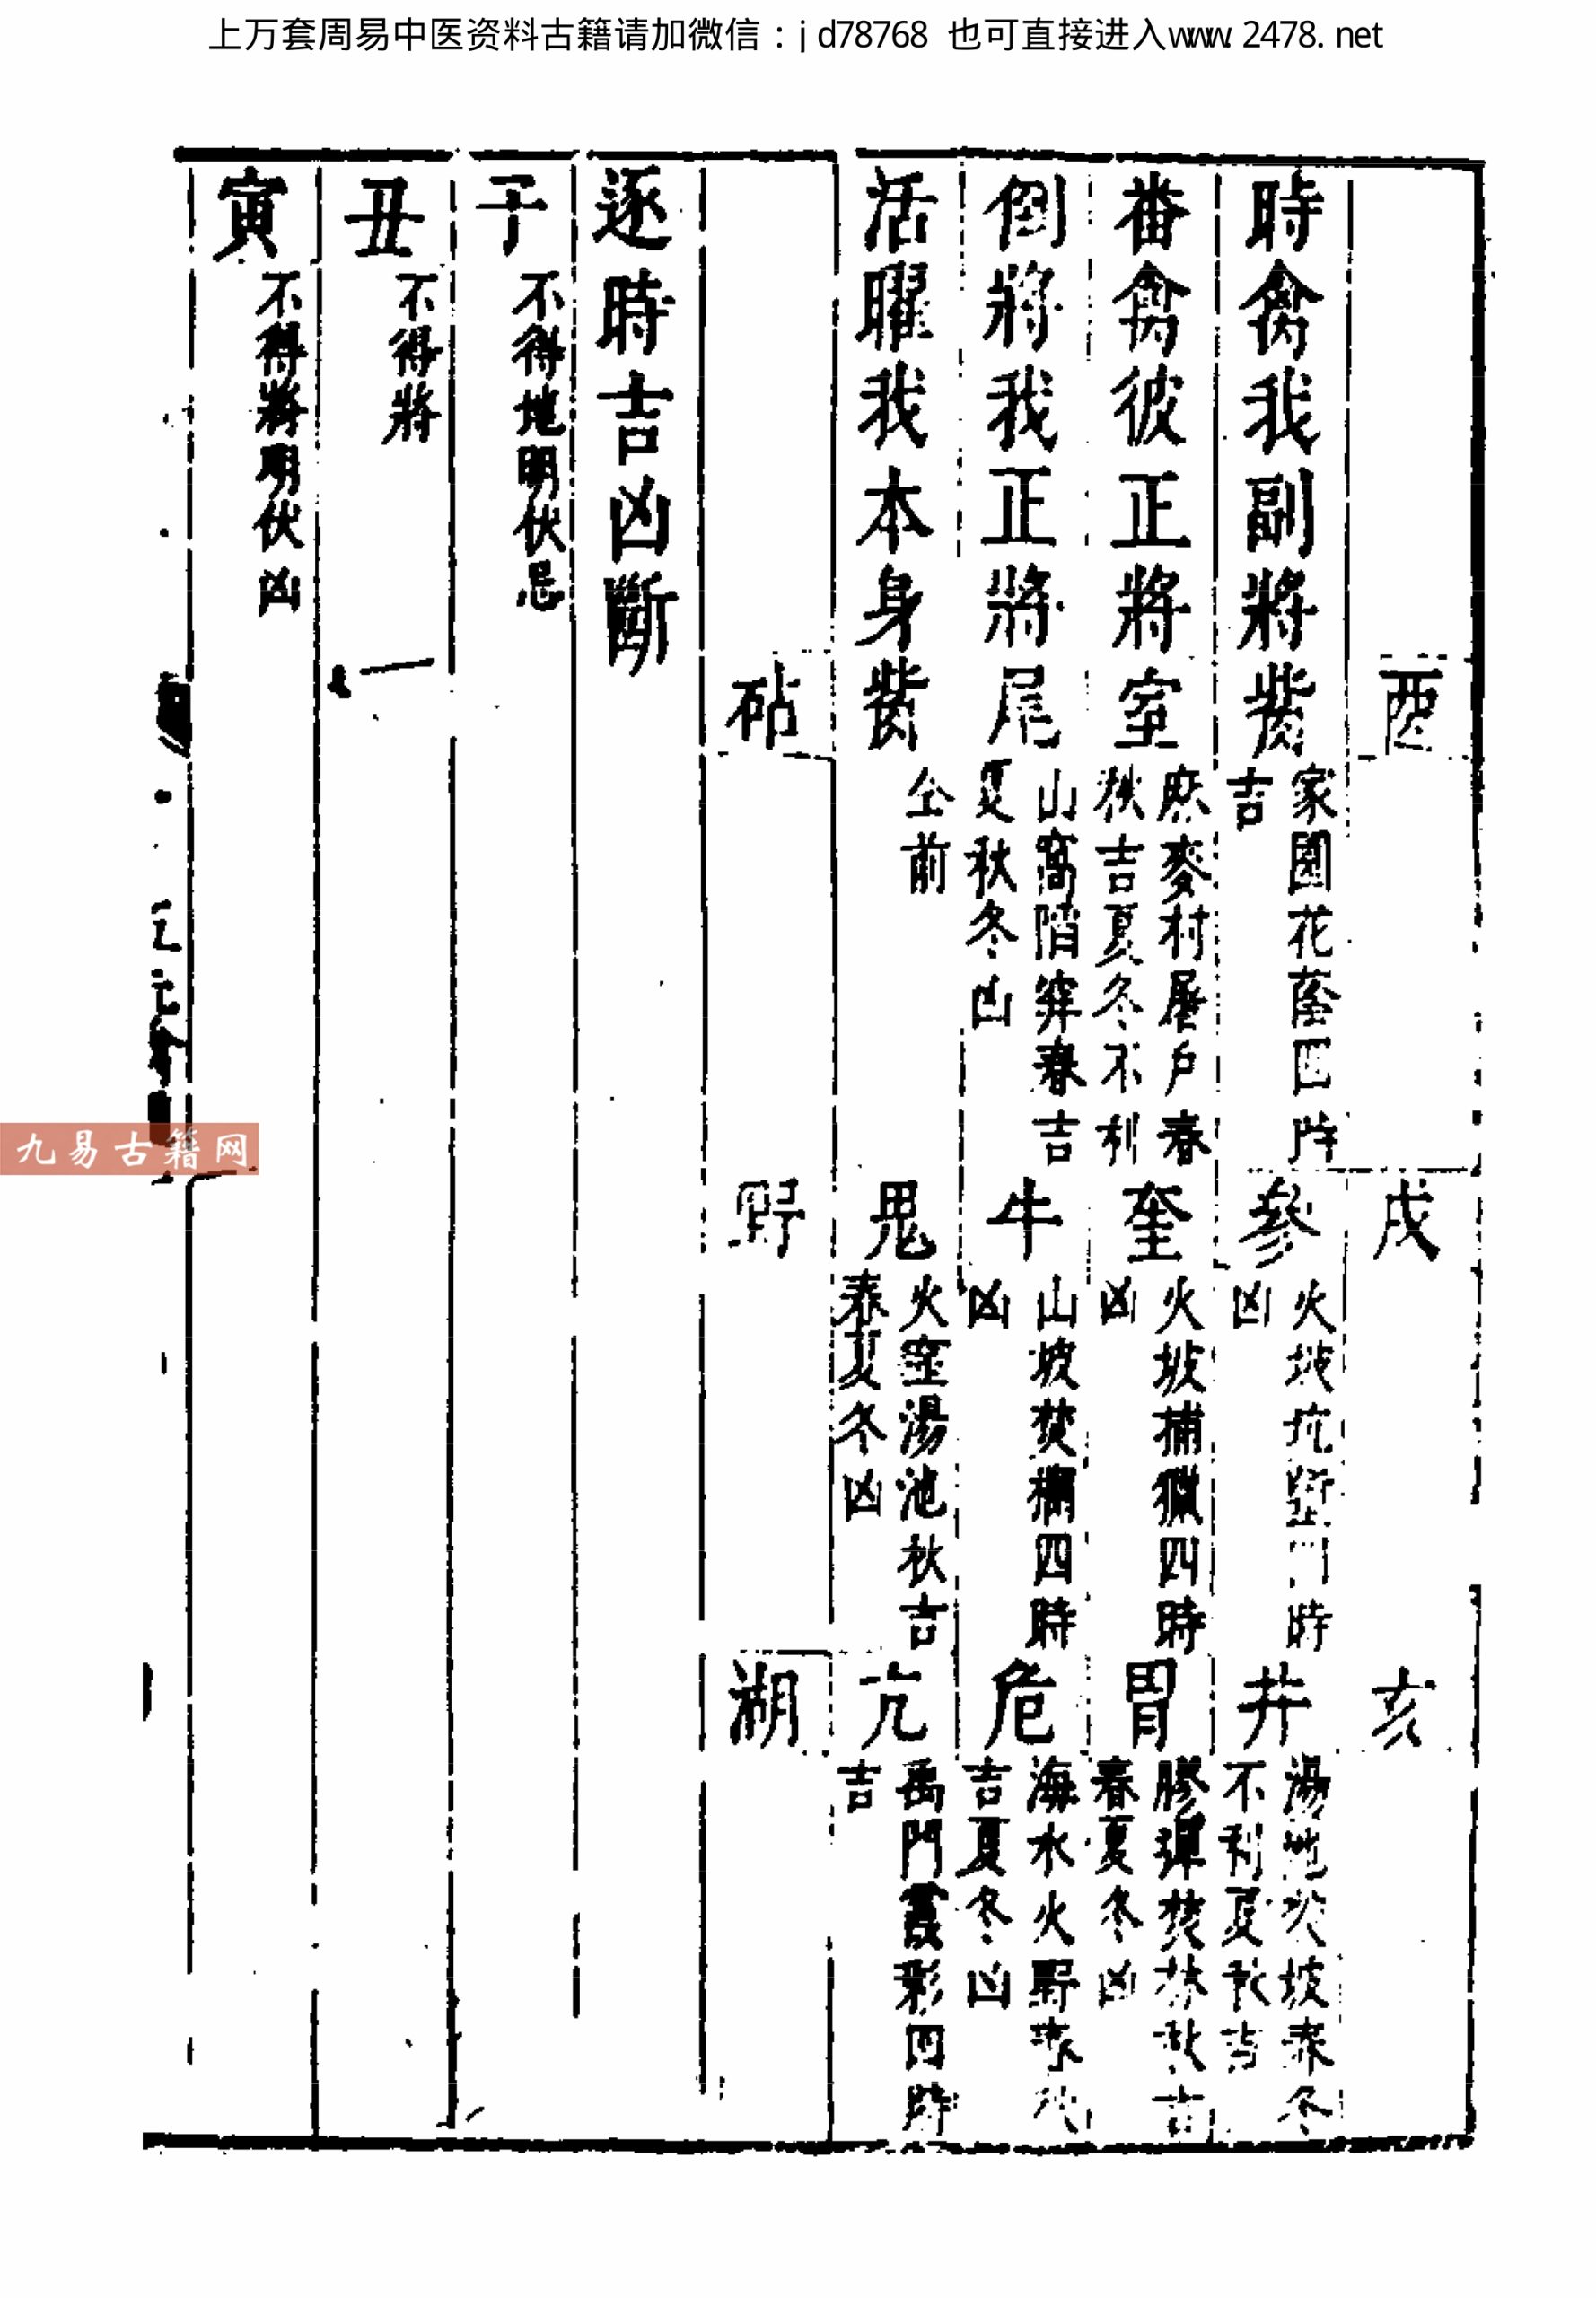 上万套周易中医资料古籍请加微信：jd78768 也可直接进入www.2478.net
酉
戌
亥
時禽我副將觜
家園花蔭四時
吉
參
火坡坑塹四時
凶
井
湯池火坡春冬
不利夏秋吉
番禽彼正將室
麻麥村屠戶春
秋吉夏冬不利
奎
火坡捕獵四時
凶
胃
膠彈焚林秋吉
春夏冬凶
倒將我正將尾
山高陷穽春吉
夏秋冬凶
牛
山坡焚欄四時
凶
危
海水火野春秋
吉夏冬凶
活曜我本身觜
仝前
鬼
火窑湯池秋吉
春夏冬凶
亢
禹門霞彩四時
吉
砧
野
湖
逐時吉凶斷
子
不得地明伏忌
丑
不得將
寅
不得將明伏凶
九易古籍网